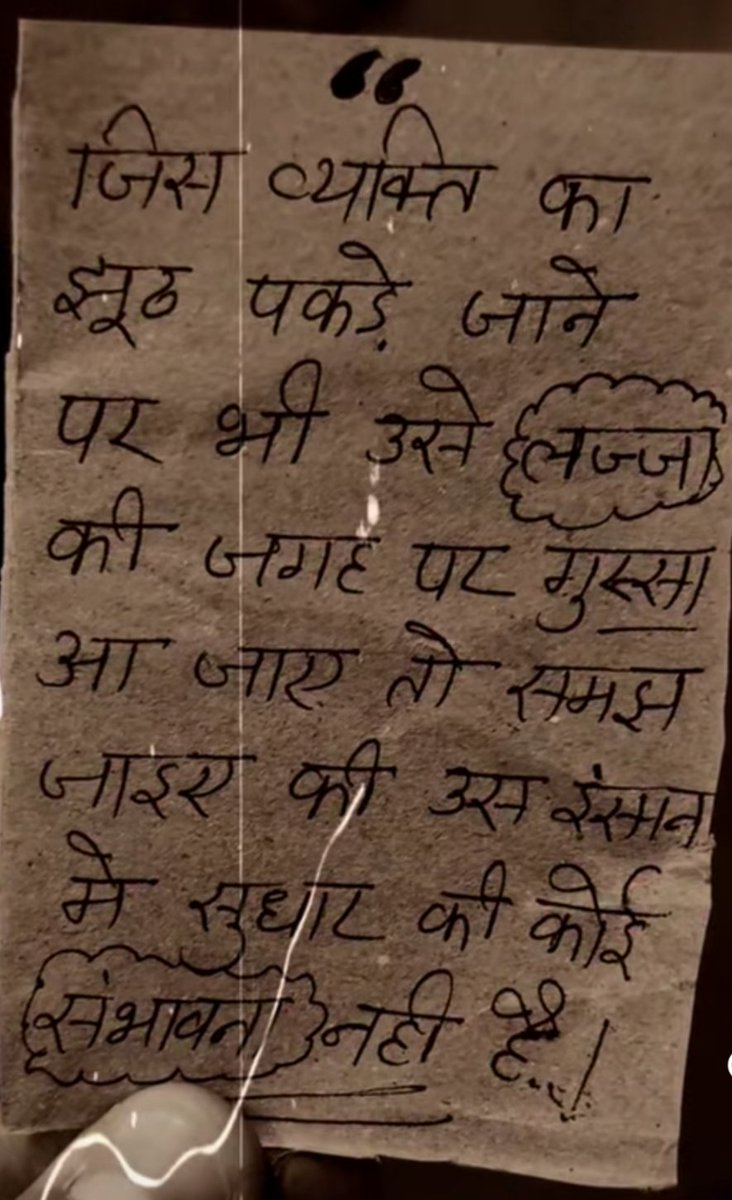 “
जिस व्यक्ति का
झूठ पकड़े जाने
पर भी उसे लज्जा
की जगह पर गुस्सा
आ जाए तो समझ
जाइए की उस इंसान
मे सुधार की कोई
संभावना नही है..!